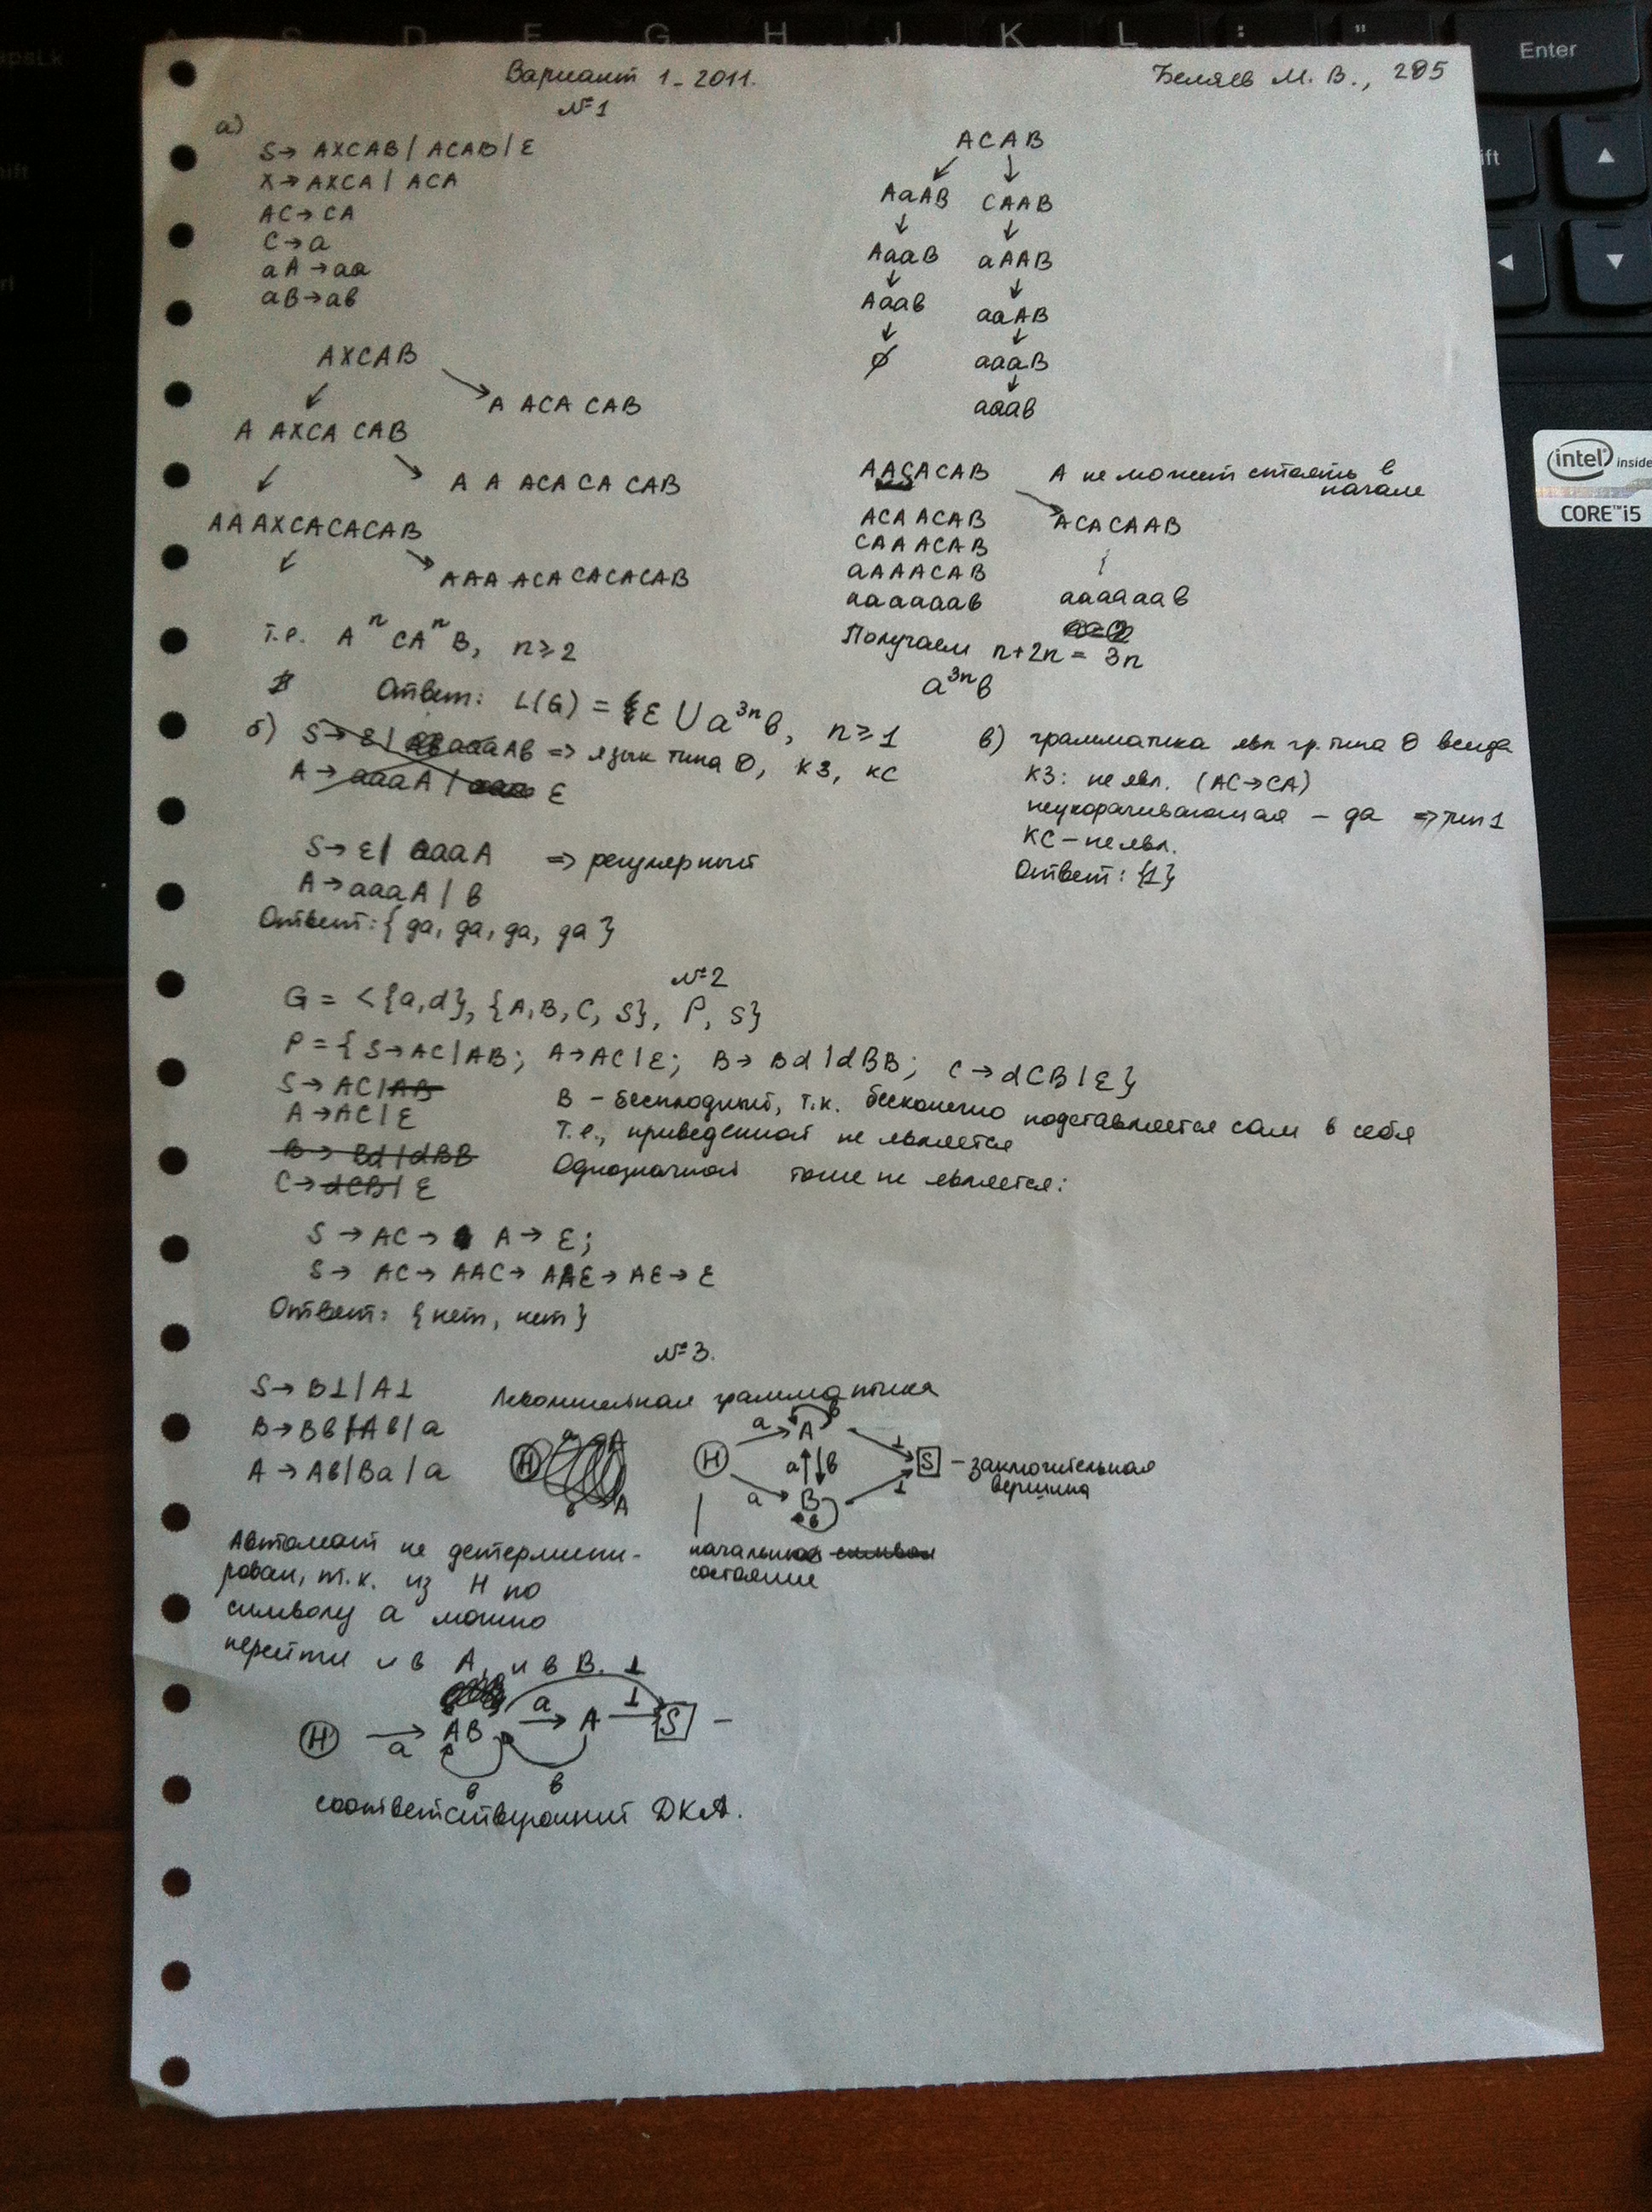 Вариант 1-2011.
Беляев М. В., 205
№1
а)
S→ AXCAB / ACAB / ε
X→ AXCA / ACA
AC→ CA
C→a
aA→aa
aB→ab
AXCAB
A ACA CAB
A AXCA CAB
A A ACA CA CAB
AAAXCACACAB
AAA ACA CACACAB
т.е. AⁿCAⁿB, n≥2
ACAB
AaAB CAAB
AaaB aAAB
Aaab aaAB
∅ aaaB
aaab
AACACAB A не может стоять в начале
ACAACAB ACACAAB
CAAACAB
aAAACAB
aaaaaab aaaaaab
Получаем n+2n = 3n
a³ⁿb
Ответ: L(G) = ε ∪ a³ⁿb, n≥1
б)
=> язык типа 0, КЗ, КС
S→ ε / aaaA => регулярный
A→aaaA / b
Ответ: {да, да, да, да}
в) грамматика явл гр. типа 0 всегда
КЗ: не явл. (AC→CA)
неукорачивающая – да => тип 1
КС – не явл.
Ответ: {1}
№2
G = <{a,d}, {A,B,C,S}, P, S}
P = { S→AC/AB; A→AC/ε; B→ Bd/dBB; C→dCB/ε}
S→ AC/AB
A→AC/ε
B→ Bd/dBB
C→dCB/ε
B – бесплодный, т.к. бесконечно подставляется сам в себя
т.е., приведенной не является
Однозначной тоже не является:
S → AC → A → ε;
S→ AC→ AAC→ AAε→ Aε→ ε
Ответ: {нет, нет}
№3.
S→ B⊥/A⊥
B→Bb/Ab/a
A→ Ab/Ba/a
Леволинейная грамматика
H a A b ⊥ S a b a B b ⊥
– заключительная вершина
начальное
состояние
Автомат не детермини-
рован, т.к. из H по
символу a можно
перейти и в A, и в B.
H a AB a A ⊥ S ⊥ b b –
соответствующий ДКА.
psLk
A S D F G H J K L : "
Enter
ift
intel inside
CORE i5